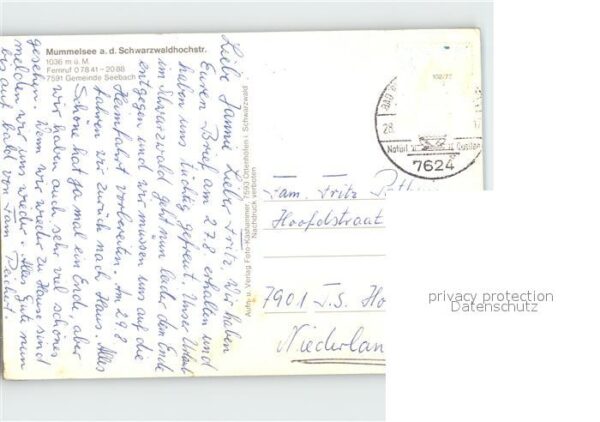 Mummelsee a. d. Schwarzwaldhochstr.
1036 m ü. M.
Fernruf 0 78 41 - 20 88
7591 Gemeinde Seebach
Liebe Hanni, Lieber Fritz, Wir haben
Euren Brief am 27.8. erhalten und
haben uns tüchtig gefreut. Unser Urlaub
im Schwarzwald geht nun leider dem Ende
entgegen und wir müssen uns auf die
Heimfahrt vorbereiten. Am 29.8
fahren wir zurück nach Haus. Alles
Schöne hat ja mal ein Ende, aber
wir haben auch sehr viel schönes
gesehen. Wenn wir wieder zu Hause sind
melden wir uns wieder. Alles Gute nun
bis auf bald von Fam
Aufn. u. Verlag Foto-Käshammer, 7593 Ottenhöfen i. Schwarzwald
Nachdruck verboten
100/77
BAD
28.
7624
Fam. Fritz
Hoofdstraat
7901 T.S. Ho
Niederlan
privacy protection
Datenschutz